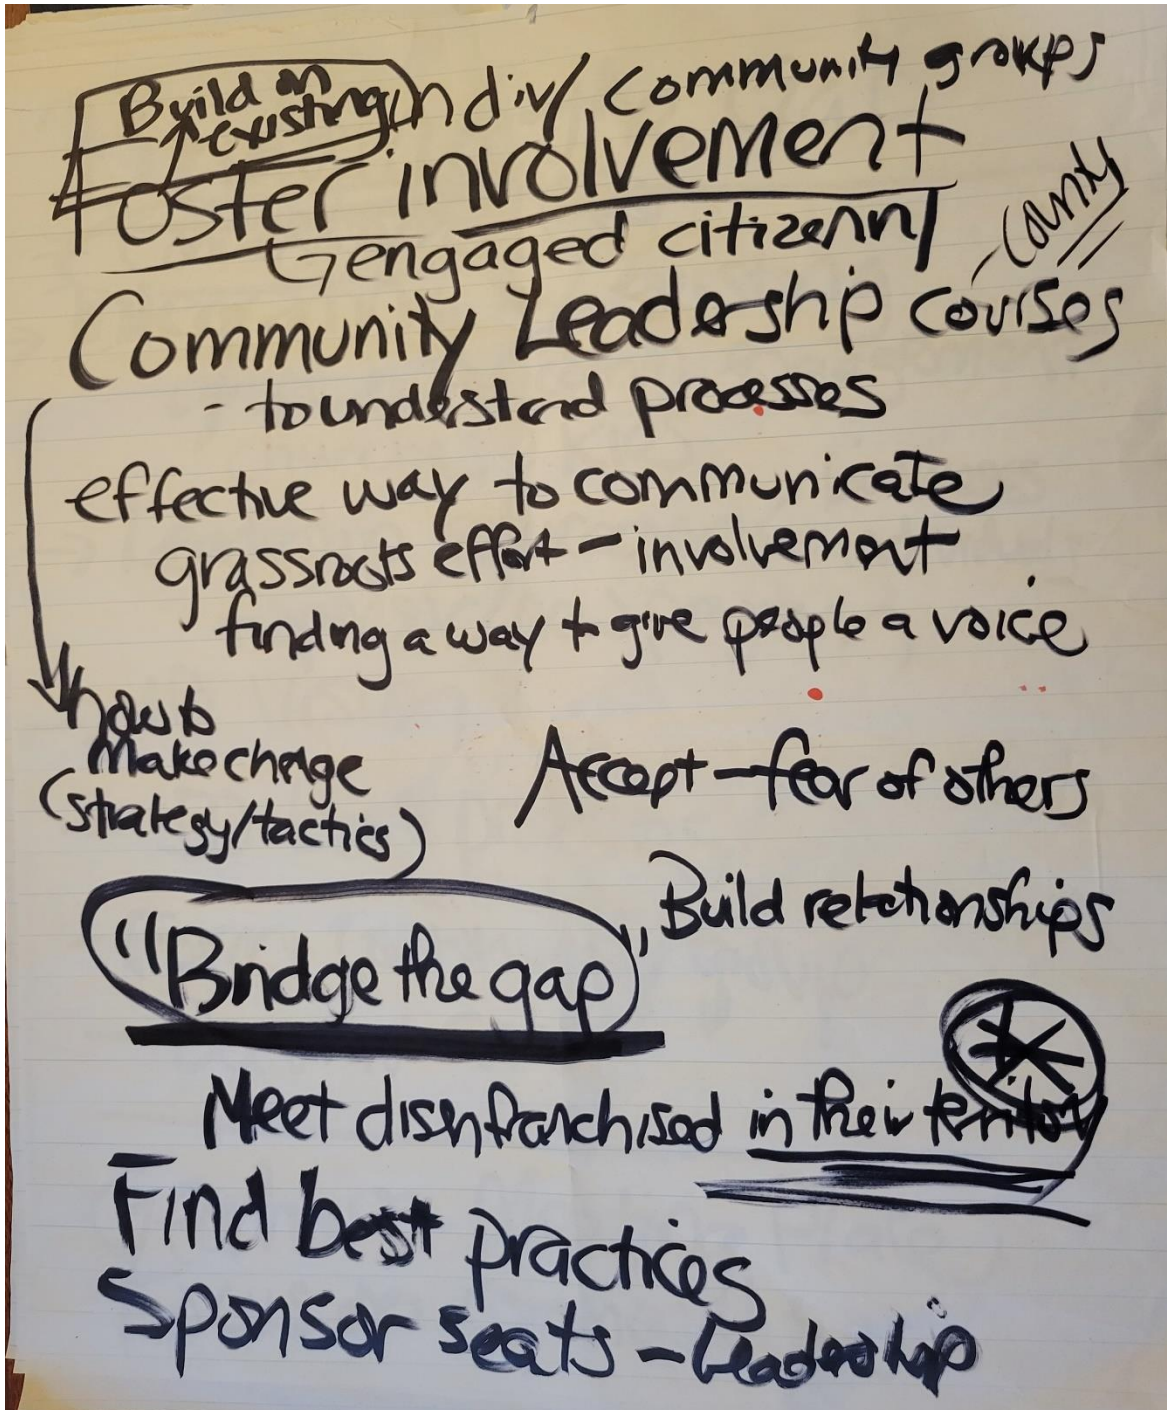 Build on
existing
indiv/ community groups
Foster involvement
engaged citizenry
- County
Community Leadership courses
- to understand processes
effective way to communicate
grassroots effort - involvement
finding a way to give people a voice
how to
make change
(strategy/tactics)
Accept - fear of others
Build relationships
"Bridge the gap"
Meet disenfranchised in their
Find best practices
Sponsor seats - Leadership